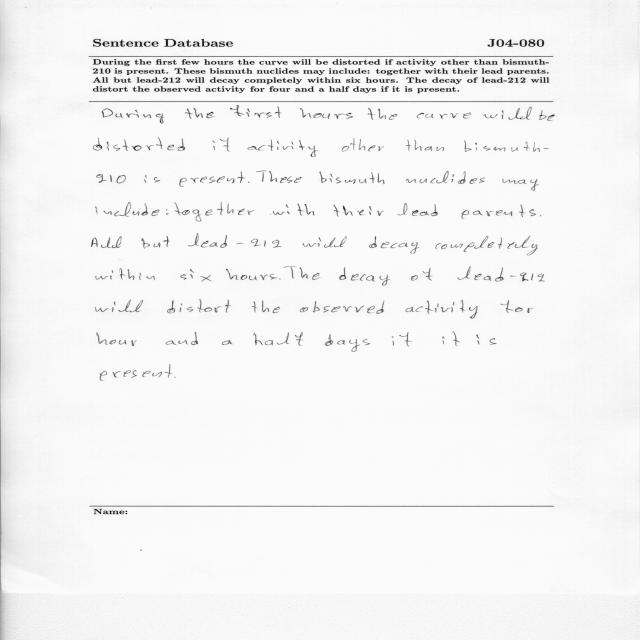 Sentence Database J04-080
During the first few hours the curve will be distorted if activity other than bismuth-
210 is present. These bismuth nuclides may include: together with their lead parents.
All but lead-212 will decay completely within six hours. The decay of lead-212 will
distort the observed activity for four and a half days if it is present.
During the first hours the curve will be
distorted if activity other than bismuth-
210 is present. These bismuth nuclides may
include: together with their lead parents.
All but lead-212 will decay completely
within six hours. The decay of lead-212
will distort the observed activity for
hour and a half days if it is
present.
Name: